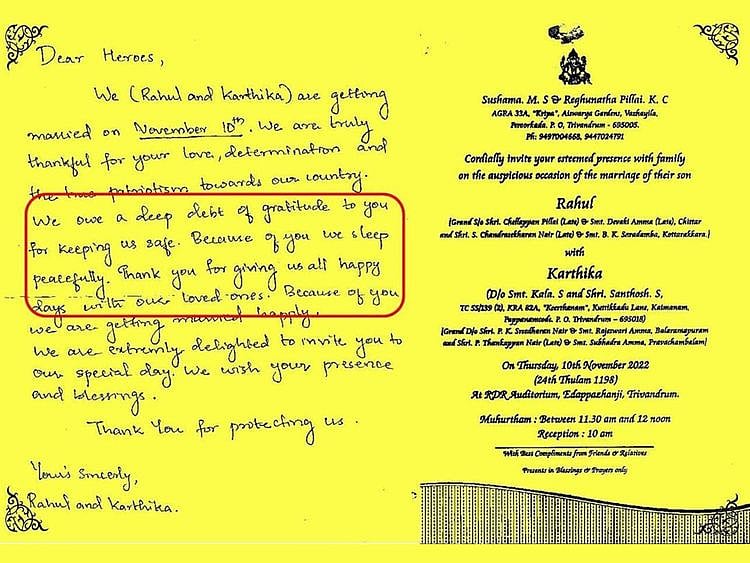 Dear Heroes,
We (Rahul and Karthika) are getting
married on November 10th. We are truly
thankful for your love, determination and
the true patriotism towards our country.
We owe a deep debt of gratitude to you
for keeping us safe. Because of you we sleep
peacefully. Thank you for giving us all happy
days with our loved ones. Because of you
we are getting married happily.
We are extremely delighted to invite you to
our special day. We wish your presence
and blessings.
Thank You for protecting us.
Your's sincerly,
Rahul and Karthika.
Sushama. M. S & Reghunatha Pillai. K. C
AGRA 33A, "Kripa", Aiswarya Gardens, Vazhayila,
Peroorkada. P. O, Trivandrum - 695005.
Ph: 9497004668, 9447024791
Cordially invite your esteemed presence with family
on the auspicious occasion of the marriage of their son
Rahul
(Grand S/o Shri. Chellappan Pillai (Late) & Smt. Devaki Amma (Late), Chittar
and Shri. S. Chandrasekharan Nair (Late) & Smt. B. K. Saradamba, Kottarakkara.)
with
Karthika
(D/o Smt. Kala. S and Shri. Santhosh. S,
TC 55/139 (2), KRA 62A, "Keerthanam", Kuttikkadu Lane, Kaimanam,
Pappanamcode. P. O. Trivandrum - 695018)
(Grand D/o Shri. P. K. Sreedharan Nair & Smt. Rajeswari Amma, Balaramapuram
and Shri. P. Thankappan Nair (Late) & Smt. Subhadra Amma, Pravachambalam)
On Thursday, 10th November 2022
(24th Thulam 1198)
At RDR Auditorium, Edappazhanji, Trivandrum.
Muhurtham : Between 11.30 am and 12 noon
Reception : 10 am
With Best Compliments from Friends & Relatives
Presents in Blessings & Prayers only